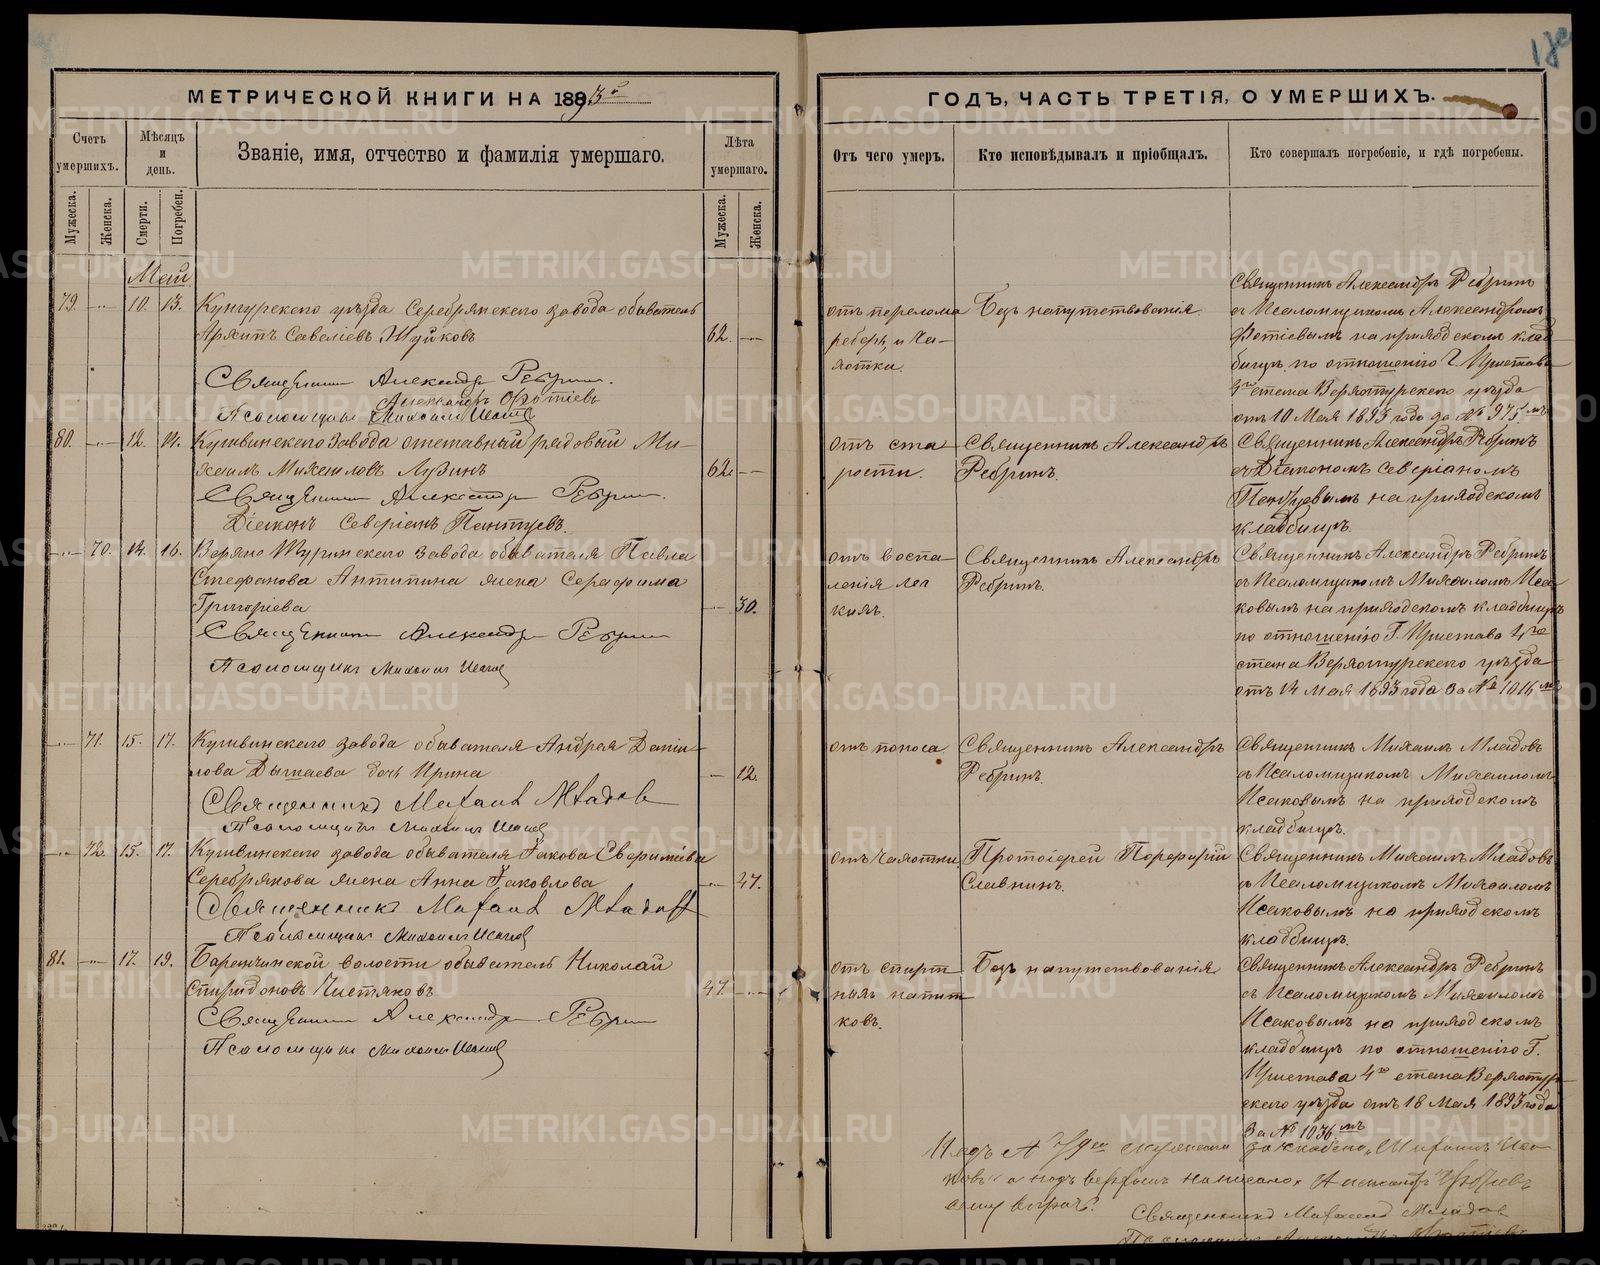 МЕТРИЧЕСКОЙ КНИГИ НА 1893й
ГОДЪ, ЧАСТЬ ТРЕТІЯ, О УМЕРШИХЪ.
Счетъ умершихъ.
Мѣсяцъ и день.
Званіе, имя, отчество и фамилія умершаго.
Лѣта умершаго.
Отъ чего умеръ.
Кто исповѣдывалъ и пріобщалъ.
Кто совершалъ погребеніе, и гдѣ погребены.
Мужеска.
Женска.
Смерти.
Погребен.
Мужеска.
Женска.
Май
79. 10. 13. Кунгурскаго уѣзда Серебрянскаго завода обыватель
Архипъ Савеліевъ Жуйковъ 62.
Священникъ Александръ Ребринъ.
Александръ Фотіевъ
Псаломщикъ Михаилъ Исаковъ
отъ перелома
реберъ и ча-
хотки.
Безъ напутствованія.
Священникъ Александръ Ребринъ
съ Псаломщикомъ Александромъ
Фотіевымъ на приходскомъ клад-
бищѣ по отношенію Г. Пристава
4го стана Верхотурскаго уѣзда
отъ 10 Мая 1893 года за № 975мъ
80. 12. 14. Кушвинскаго завода отставный рядовый Ми-
хаилъ Михаиловъ Лузинъ 62.
Священникъ Александръ Ребринъ.
Діаконъ Северіанъ Пантуевъ.
отъ ста
рости.
Священникъ Александръ
Ребринъ.
Священникъ Александръ Ребринъ
съ Діакономъ Северіаномъ
Пантуевымъ на приходскомъ
кладбищѣ.
70. 14. 16. Верхно Туринскаго завода обывателя Павла
Стефанова Антипина жена Серафима
Григоріева 30.
Священникъ Александръ Ребринъ
Псаломщикъ Михаилъ Исаковъ
отъ воспа
ленія лег
кихъ.
Священникъ Александръ
Ребринъ.
Священникъ Александръ Ребринъ
съ Псаломщикомъ Михаиломъ Иса-
ковымъ на приходскомъ кладбищѣ
по отношенію Г. Пристава 4го
стана Верхотурскаго уѣзда
отъ 14 Мая 1893 года за № 1016мъ
71. 15. 17. Кушвинскаго завода обывателя Андрея Даніи-
лова Дынаева дочь Ирина 12.
Священникъ Михаилъ Младовъ
Псаломщикъ Михаилъ Исаковъ
отъ поноса
Священникъ Александръ
Ребринъ.
Священникъ Михаилъ Младовъ
съ Псаломщикомъ Михаиломъ
Исаковымъ на приходскомъ
кладбищѣ.
72. 15. 17. Кушвинскаго завода обывателя Іакова Евфиміева
Серебрякова жена Анна Іаковлева 47.
Священникъ Михаилъ Младовъ
Псаломщикъ Михаилъ Исаковъ
отъ чахотки
Протоіерей Порфирій
Славнинъ.
Священникъ Михаилъ Младовъ
съ Псаломщикомъ Михаиломъ
Исаковымъ на приходскомъ
кладбищѣ.
81. 17. 19. Баранчинской волости обыватель Николай
Спиридоновъ Чистяковъ 47.
Священникъ Александръ Ребринъ
Псаломщикъ Михаилъ Исаковъ
отъ спирт
ныхъ напит
ковъ.
Безъ напутствованія
Священникъ Александръ Ребринъ
съ Псаломщикомъ Михаиломъ
Исаковымъ на приходскомъ
кладбищѣ по отношенію Г.
Пристава 4го стана Верхотур-
скаго уѣзда отъ 18 Мая 1893 года
За № 1036мъ
Подъ № 79
а надъ написано Александръ Фотіевъ
Священникъ Михаилъ Младовъ
METRIKI.GASO-URAL.RU